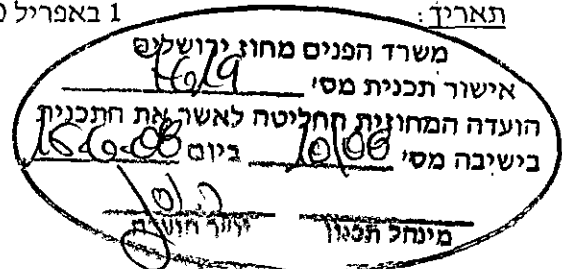 תאריך: 1 באפריל
משרד הפנים מחוז ירושלים
אישור תכנית מס'
הועדה המחוזית החליטה לאשר את התכנית
בישיבה מס' 10/06 ביום
מינהל תכנון יושב הועדה